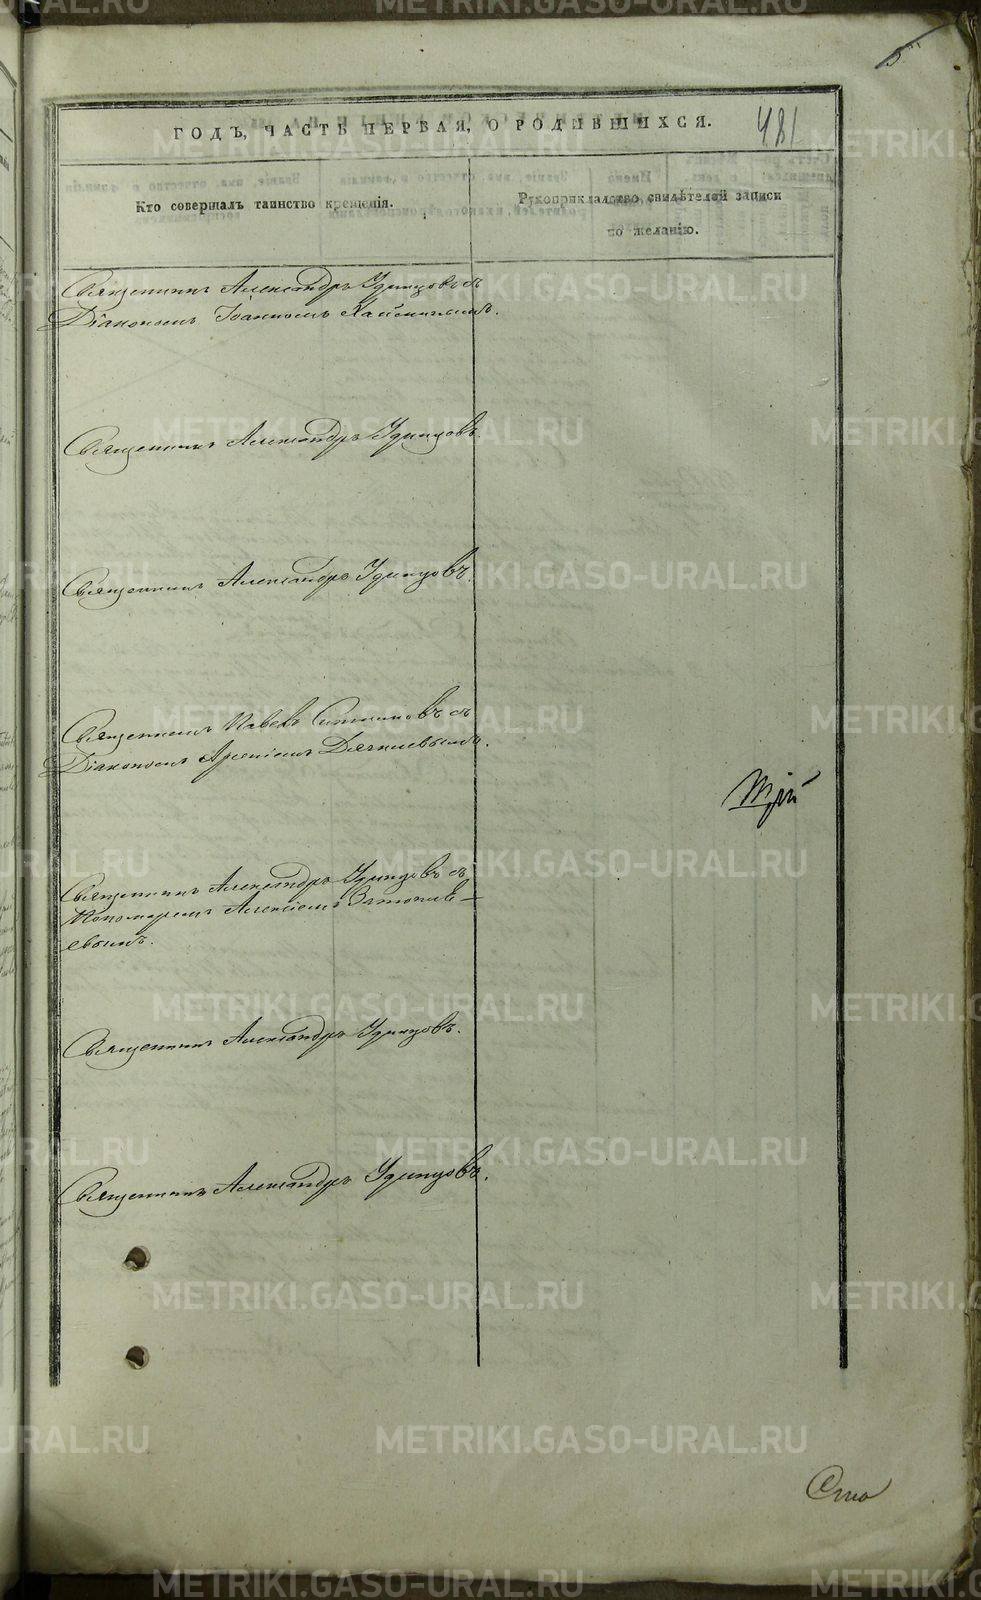 5
481
ГОДЪ, ЧАСТЬ ПЕРВАЯ, О РОДИВШИХСЯ.
Кто совершалъ таинство крещенія.
Рукоприкладство свидѣтелей записи
по желанію.
Священникъ Александръ Удинцовъ съ
Діакономъ Іоанномъ
Священникъ Александръ Удинцовъ.
Священникъ Александръ Удинцовъ.
Священникъ Павелъ Ситниковъ съ
Діакономъ Арсеніемъ Дягилевымъ.
Священникъ Александръ Удинцовъ съ
Пономаремъ Алексіемъ
евымъ.
Священникъ Александръ Удинцовъ.
Священникъ Александръ Удинцовъ.
METRIKI.GASO-URAL.RU